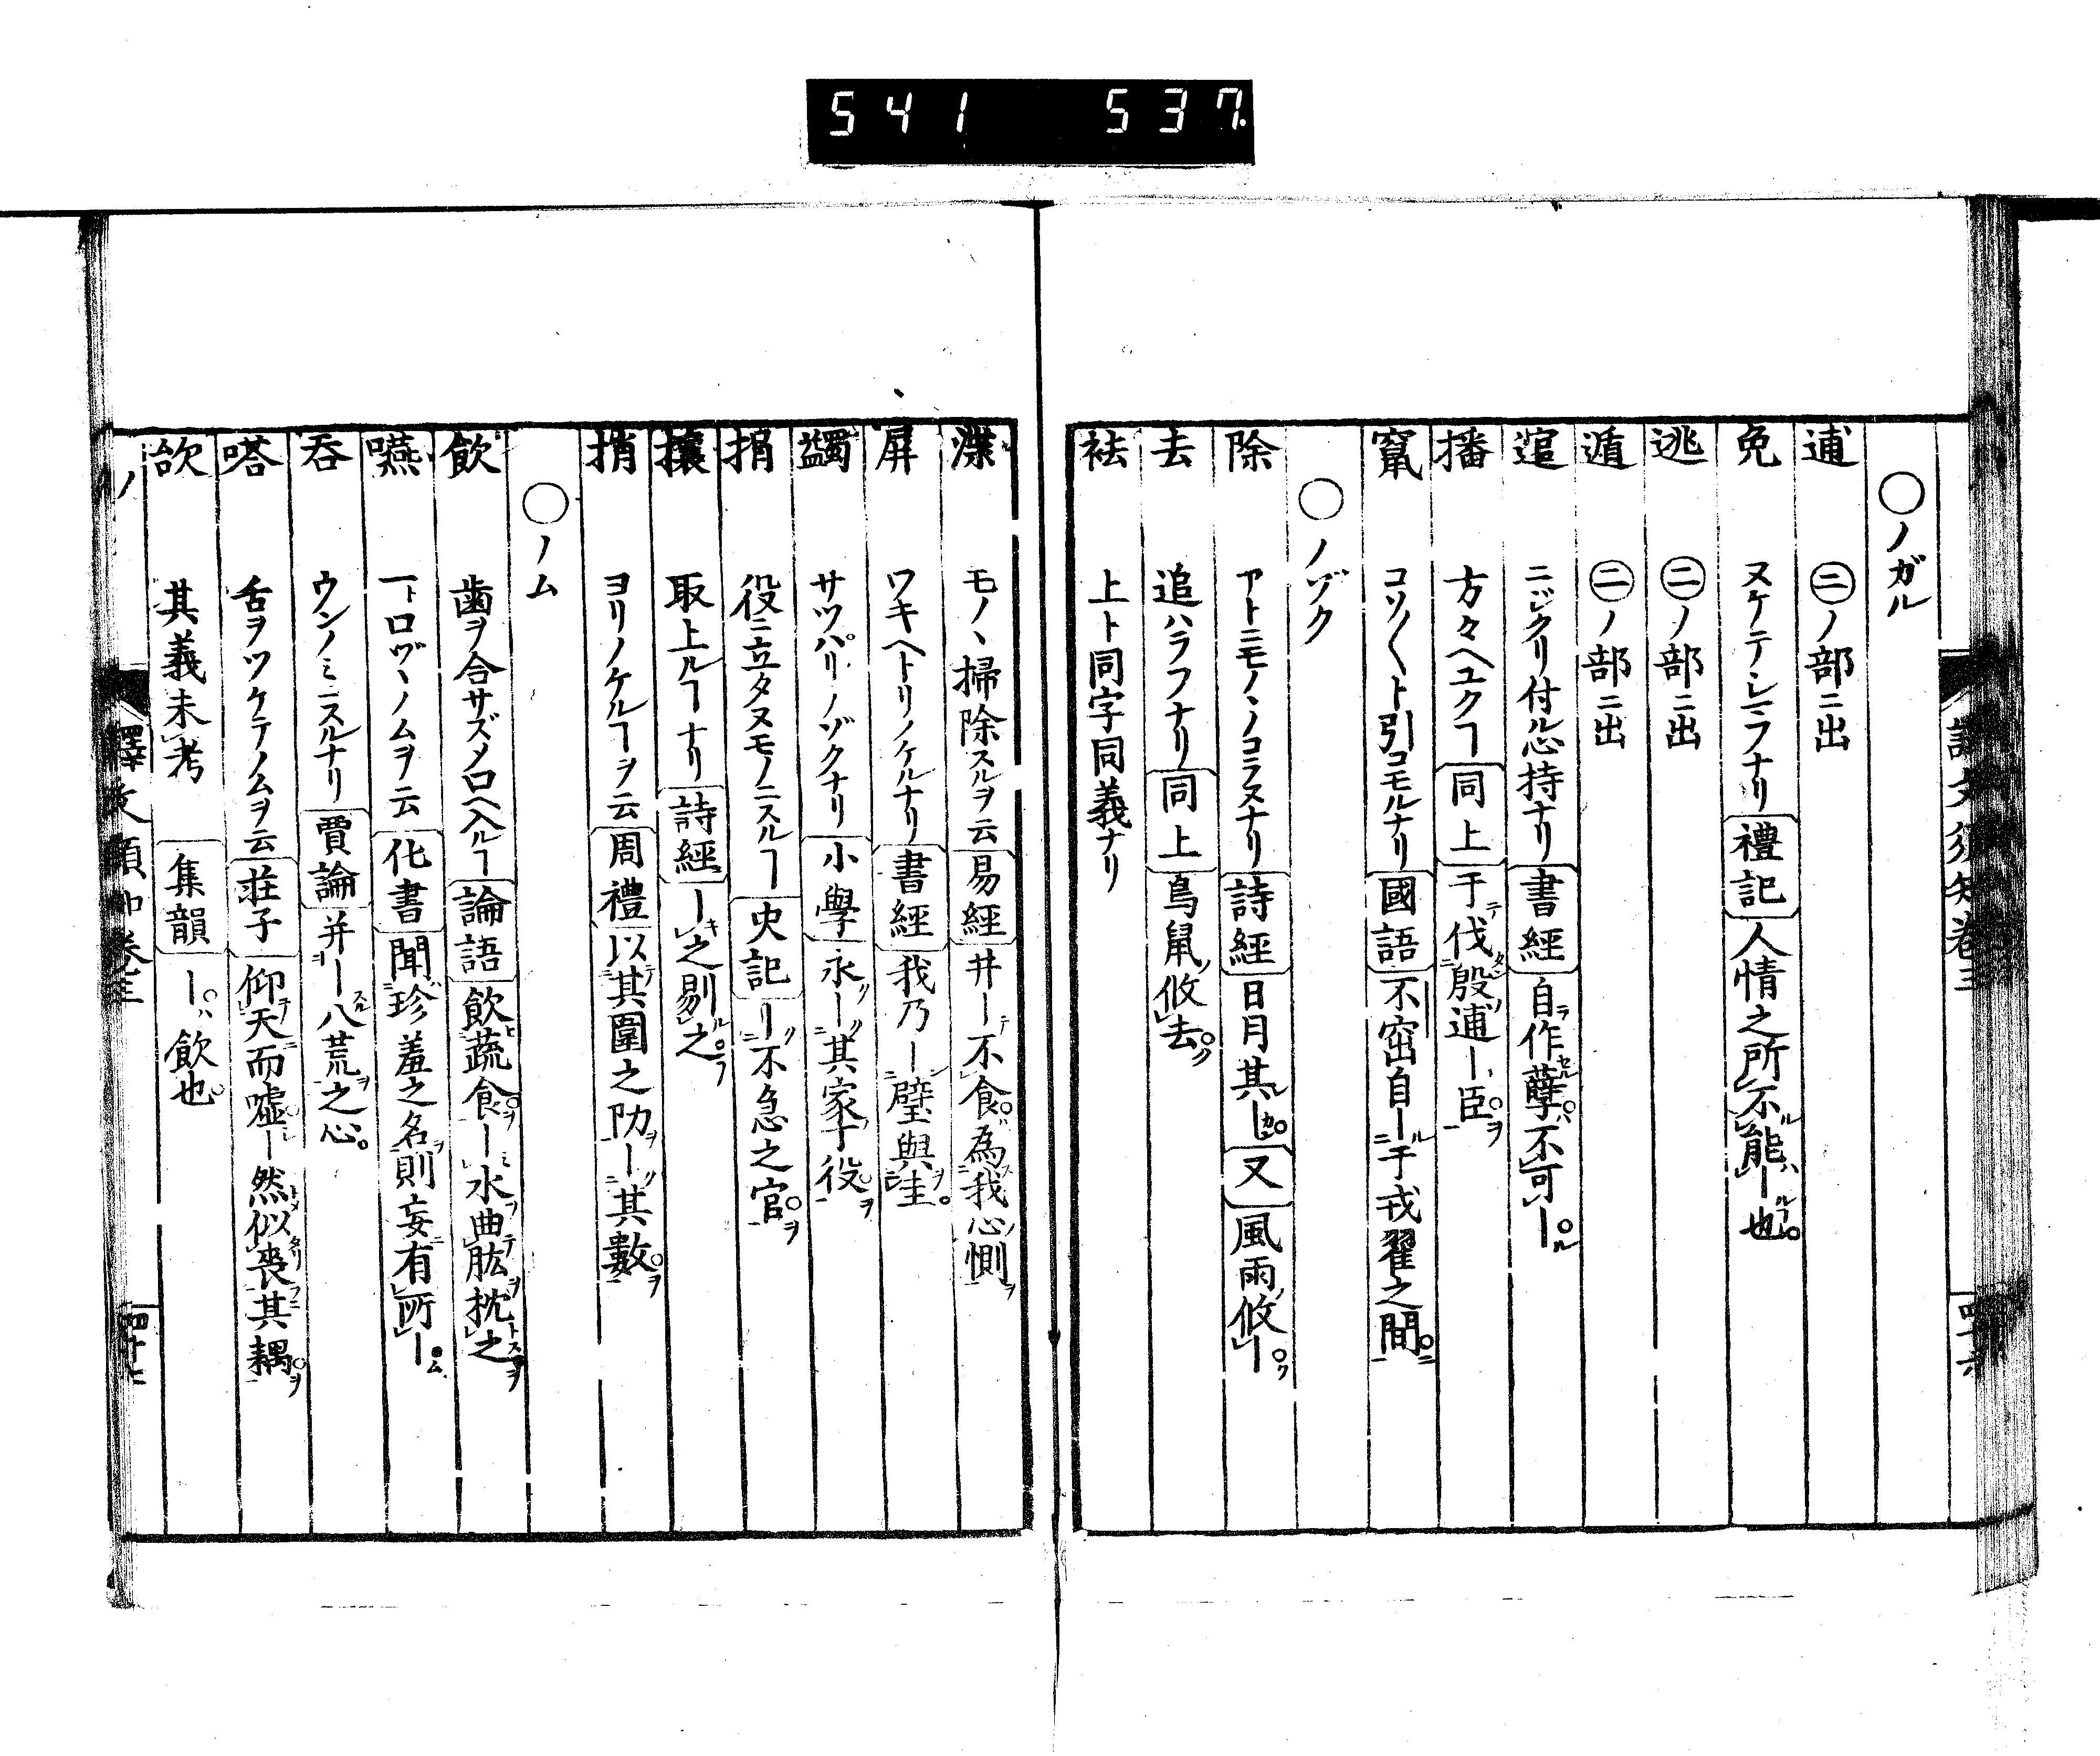 541 537
○ノガル
逋 ㊁ノ部ニ出
免 ヌケテシマフナリ 禮記 人情之所不能ー也
逃 ㊁ノ部ニ出
遁 ㊁ノ部ニ出
逭 ニジクリ付ル心持ナリ 書經 自作孽不可ー
播 方々ヘユクヿ 同上 于伐殷逋ー臣
竄 コソ〳〵ト引コモルナリ 國語 不窋自ー于戎翟之間
○ノゾク
除 アトニモノヽノコラヌナリ 詩經 日月其ー 又 風雨攸ー
去 追ハラフナリ 同上 鳥鼠攸去
袪 上ト同字同義ナリ
渫 モノヽ掃除スルヲ云 易經 井ー不食為我心惻
屏 ワキヘトリノケルナリ 書經 我乃ー璧與圭
蠲 サツパリノゾクナリ 小學 永ー其家丁役
捐 役ニ立タヌモノニスルヿ 史記 ー不急之官
攘 取上ルヿナリ 詩經 ー之剔之
捎 ヨリノケルヿヲ云 周禮 以其圍之阞ー其數
○ノム
飲 歯ヲ合サズメ口ヘ入ルヿ 論語 飲蔬食ー水曲肱枕之
嚥 一ト口ヅヽノムヲ云 化書 聞珍羞之名則妄有所ー
呑 ウンノミニスルナリ 賈論 并ー八荒之心
嗒 舌ヲツケテノムヲ云 荘子 仰天而噓ー然似喪其耦
欱 其義未考 集韻 ー飲也
ノ 譯文須知巻三 四十七